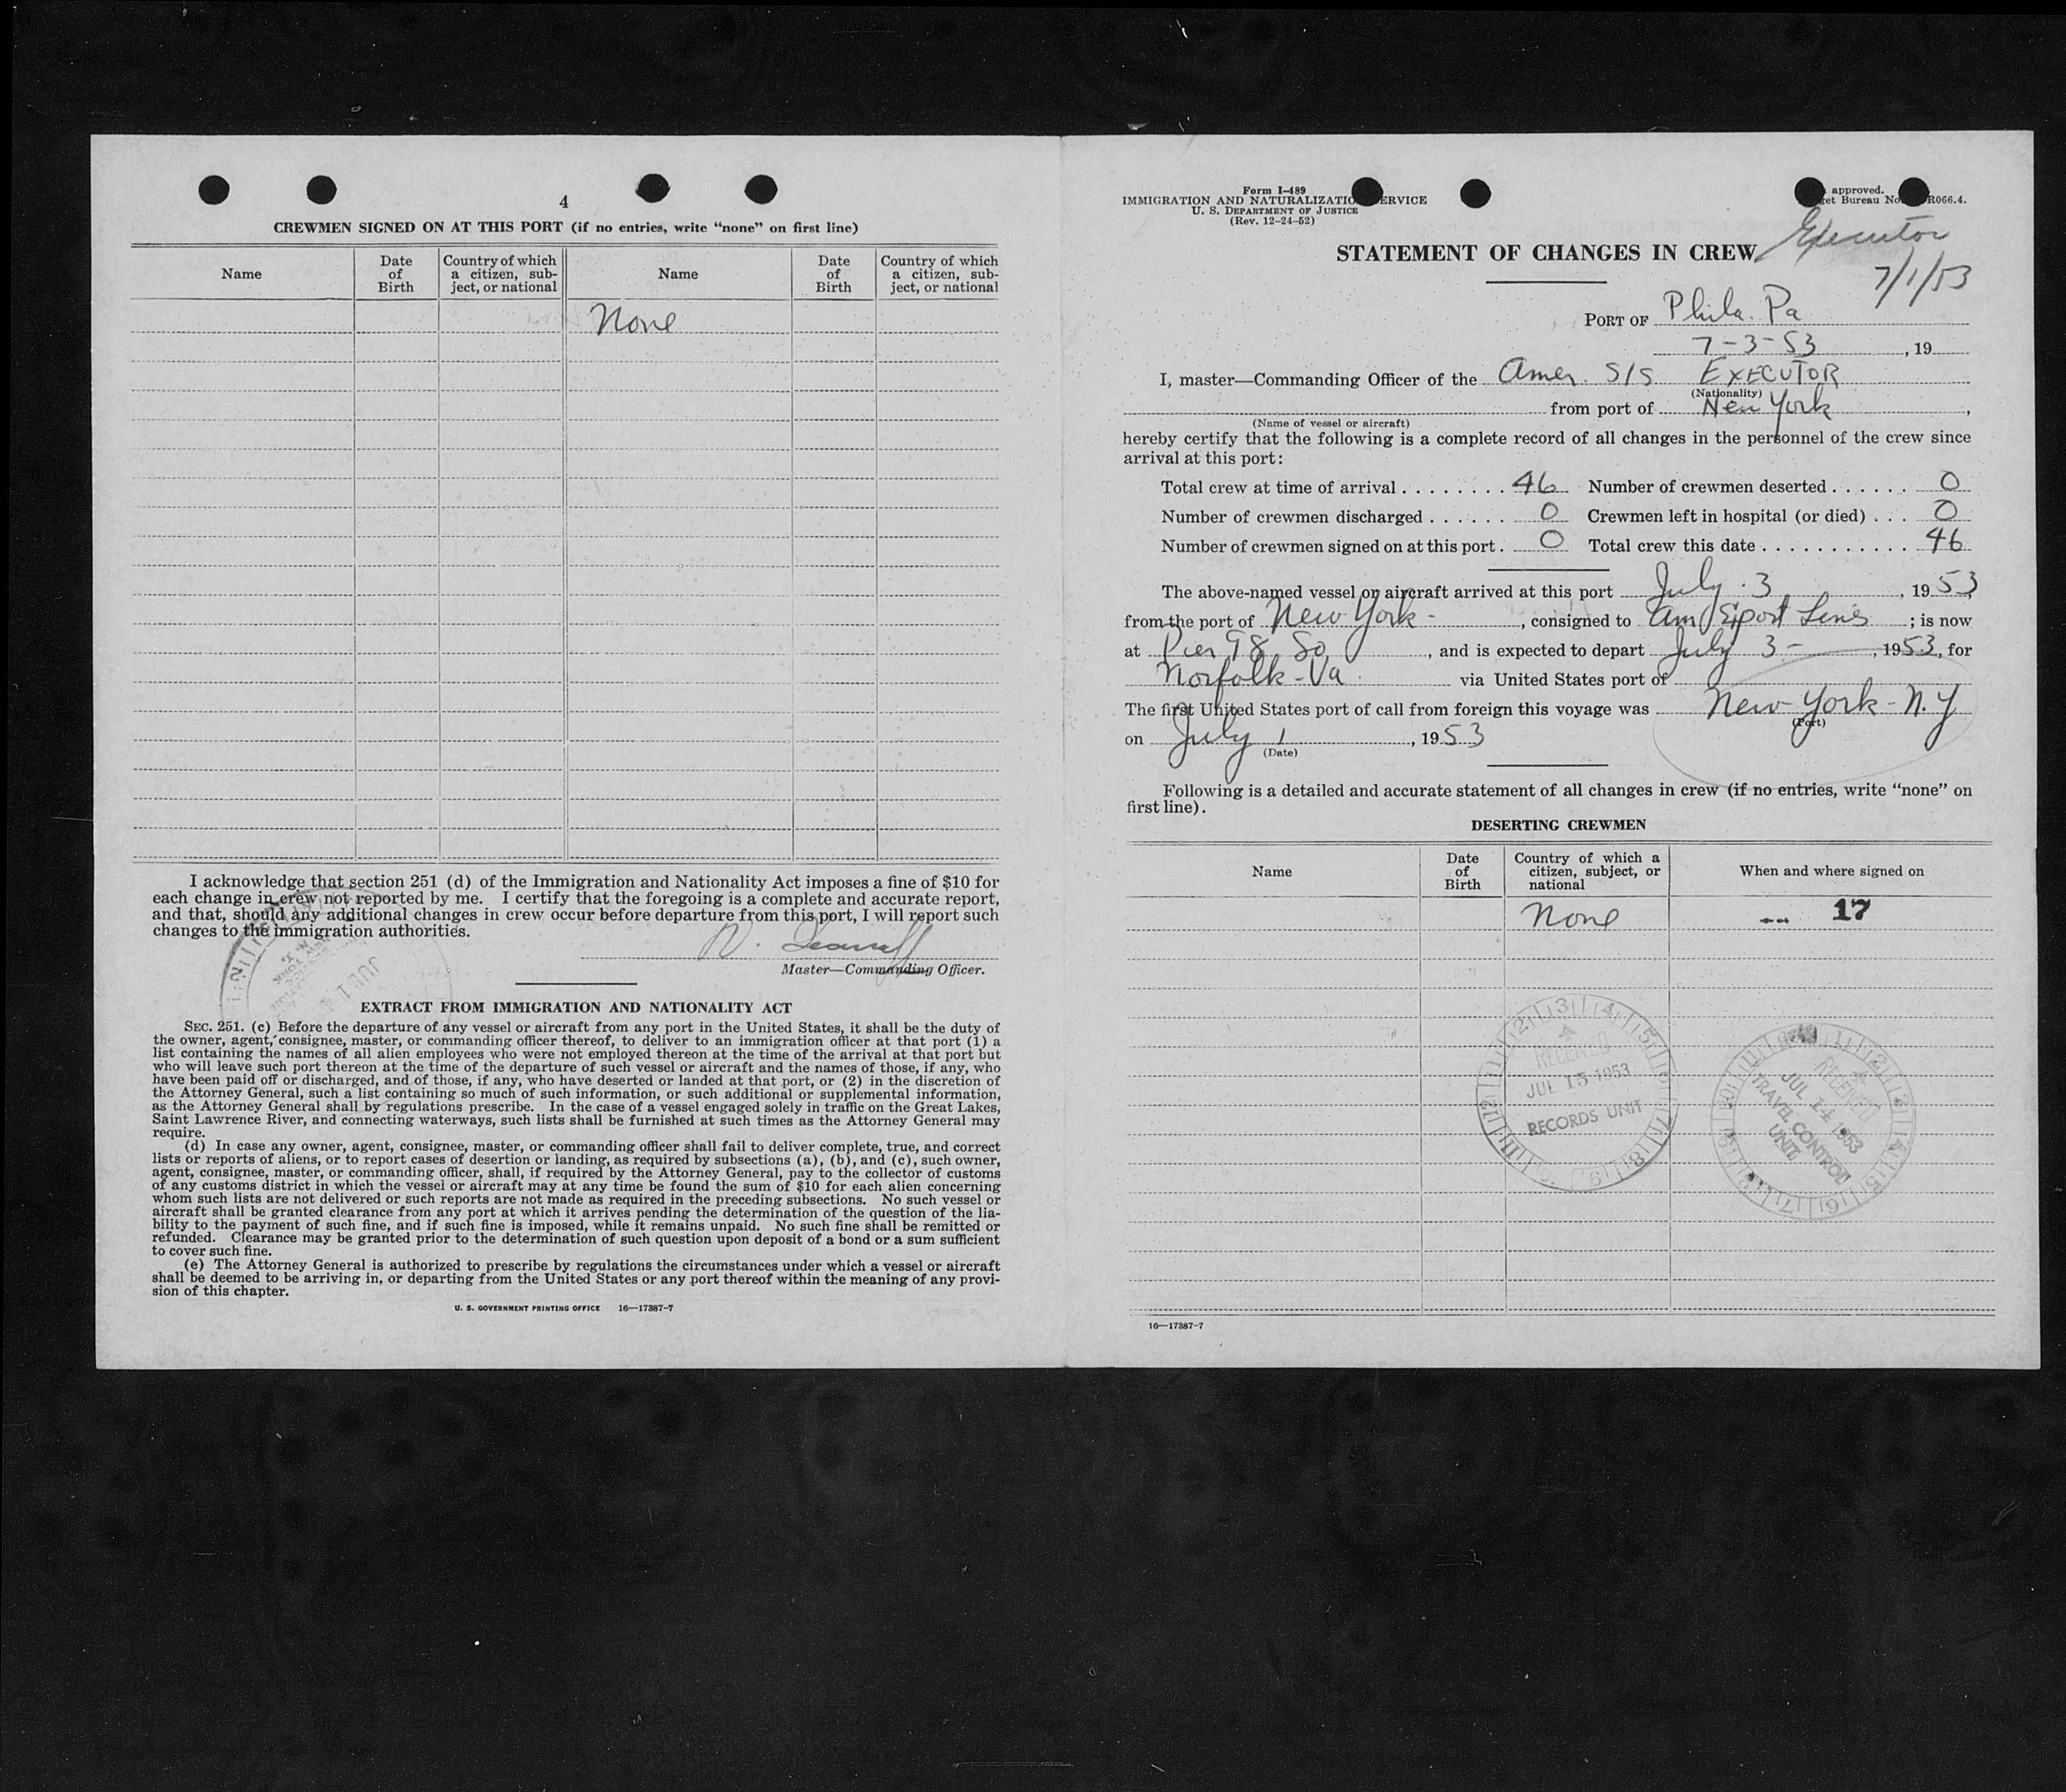 4
CREWMEN SIGNED ON AT THIS PORT (if no entries, write “none” on first line)
Name Date of Birth Country of which a citizen, sub-ject, or national Name Date of Birth Country of which a citizen, sub-ject, or national
None
I acknowledge that section 251 (d) of the Immigration and Nationality Act imposes a fine of $10 for
each change in crew not reported by me. I certify that the foregoing is a complete and accurate report,
and that, should any additional changes in crew occur before departure from this port, I will report such
changes to the immigration authorities.
Master—Commanding Officer.
EXTRACT FROM IMMIGRATION AND NATIONALITY ACT
SEC. 251. (c) Before the departure of any vessel or aircraft from any port in the United States, it shall be the duty of
the owner, agent, consignee, master, or commanding officer thereof, to deliver to an immigration officer at that port (1) a
list containing the names of all alien employees who were not employed thereon at the time of the arrival at that port but
who will leave such port thereon at the time of the departure of such vessel or aircraft and the names of those, if any, who
have been paid off or discharged, and of those, if any, who have deserted or landed at that port, or (2) in the discretion of
the Attorney General, such a list containing so much of such information, or such additional or supplemental information,
as the Attorney General shall by regulations prescribe. In the case of a vessel engaged solely in traffic on the Great Lakes,
Saint Lawrence River, and connecting waterways, such lists shall be furnished at such times as the Attorney General may
require.
(d) In case any owner, agent, consignee, master, or commanding officer shall fail to deliver complete, true, and correct
lists or reports of aliens, or to report cases of desertion or landing, as required by subsections (a), (b), and (c), such owner,
agent, consignee, master, or commanding officer, shall, if required by the Attorney General, pay to the collector of customs
of any customs district in which the vessel or aircraft may at any time be found the sum of $10 for each alien concerning
whom such lists are not delivered or such reports are not made as required in the preceding subsections. No such vessel or
aircraft shall be granted clearance from any port at which it arrives pending the determination of the question of the lia-
bility to the payment of such fine, and if such fine is imposed, while it remains unpaid. No such fine shall be remitted or
refunded. Clearance may be granted prior to the determination of such question upon deposit of a bond or a sum sufficient
to cover such fine.
(e) The Attorney General is authorized to prescribe by regulations the circumstances under which a vessel or aircraft
shall be deemed to be arriving in, or departing from the United States or any port thereof within the meaning of any provi-
sion of this chapter.
U. S. GOVERNMENT PRINTING OFFICE 16—17387-7
Form I-489
IMMIGRATION AND NATURALIZATION SERVICE
U. S. DEPARTMENT OF JUSTICE
(Rev. 12-24-52)
approved.
Bureau No. R066.4.
Executor
7/1/53
STATEMENT OF CHANGES IN CREW
PORT OF Phila. Pa
7-3-53, 19
I, master—Commanding Officer of the Amer. S/S EXECUTOR
(Nationality)
from port of New York,
(Name of vessel or aircraft)
hereby certify that the following is a complete record of all changes in the personnel of the crew since
arrival at this port:
Total crew at time of arrival 46 Number of crewmen deserted 0
Number of crewmen discharged 0 Crewmen left in hospital (or died) 0
Number of crewmen signed on at this port. 0 Total crew this date 46
The above-named vessel or aircraft arrived at this port July 3, 1953
from the port of New York-, consigned to Am Export Lines; is now
at Pier 98 So, and is expected to depart July 3-, 1953, for
Norfolk-Va. via United States port of
The first United States port of call from foreign this voyage was New York-N.Y
(Port)
on July 1, 1953
(Date)
Following is a detailed and accurate statement of all changes in crew (if no entries, write “none” on
first line).
DESERTING CREWMEN
Name Date of Birth Country of which a citizen, subject, or national When and where signed on
None -- 17
RECEIVED
JUL 13 1953
RECORDS UNIT
RECEIVED
JUL 14 1953
TRAVEL CONTROL
UNIT
16—17387-7